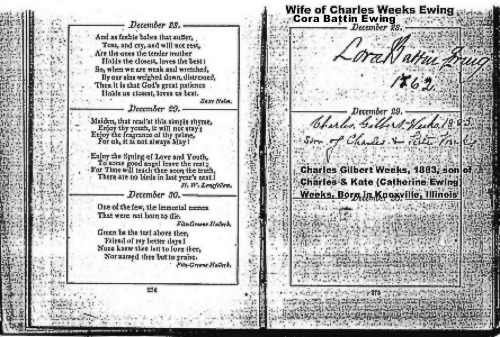 December 28.
And as feeble babes that suffer,
Toss, and cry, and will not rest,
Are the ones the tender mother
Holds the closest, loves the best:
So, when we are weak and wretched,
By our sins weighed down, distressed,
Then it is that God's great patience
Holds us closest, loves us best.
Saxe Holm.
December 29.
Maiden, that read'st this simple rhyme,
Enjoy thy youth, it will not stay;
Enjoy the fragrance of thy prime,
For oh, it is not always May!
Enjoy the Spring of Love and Youth,
To some good angel leave the rest;
For Time will teach thee soon the truth,
There are no birds in last year's nest!
H. W. Longfellow.
December 30.
One of the few, the immortal names
That were not born to die.
Fitz-Greene Halleck.
Green be the turf above thee,
Friend of my better days!
None knew thee but to love thee,
Nor named thee but to praise.
Fitz-Greene Halleck.
274
Wife of Charles Weeks Ewing
Cora Battin Ewing
December 28.
Cora Battin Ewing
1862.
December 29.
Charles Gilbert Weeks 1883
son of Charles & Kate Weeks
Charles Gilbert Weeks, 1883, son of
Charles & Kate (Catherine Ewing
Weeks, Born in Knoxville, Illinois
275